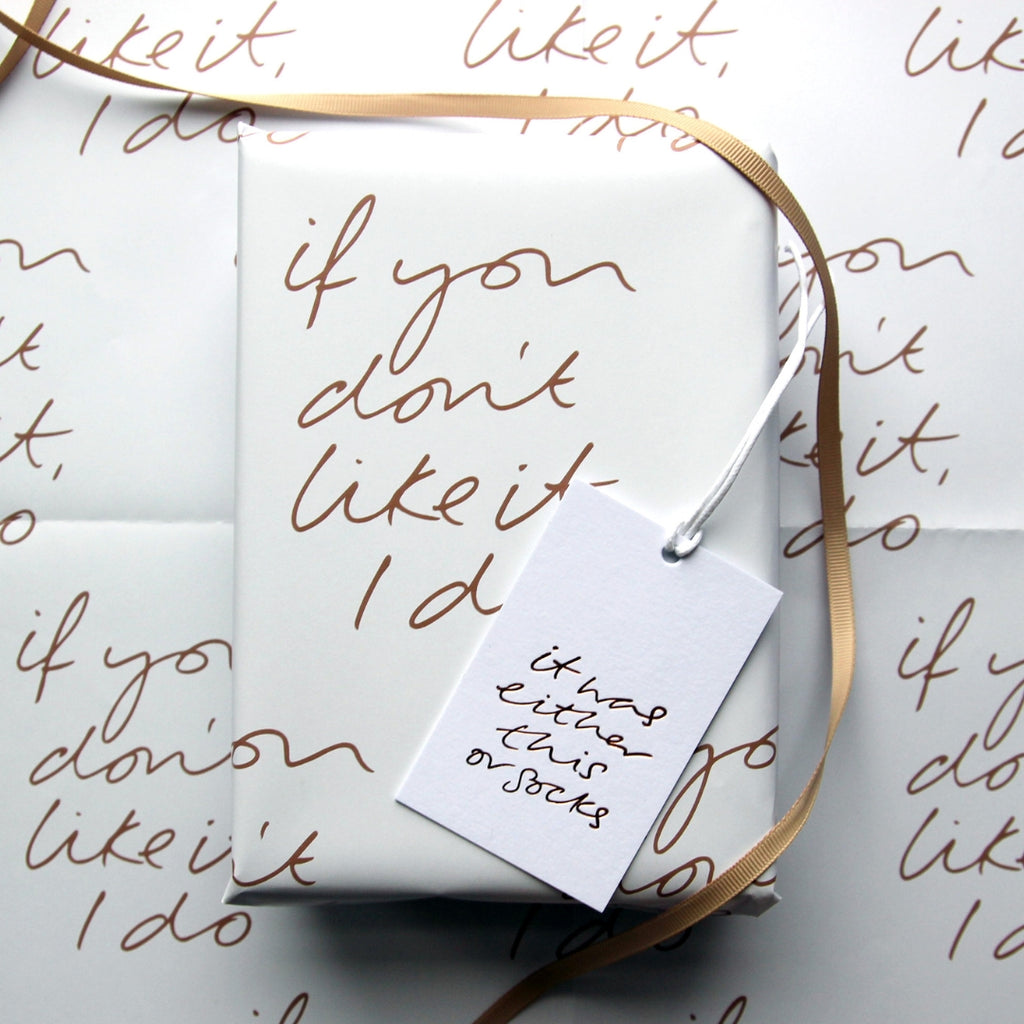 like it,
I do
like it,
I do
lik
I d
if you
don't
like it
I d
it was
either
this
or socks
on
't
t,
o
you
on't
ke it,
do
if you
don
like i
I do
on
't
yo
do
if y
do
like
I d